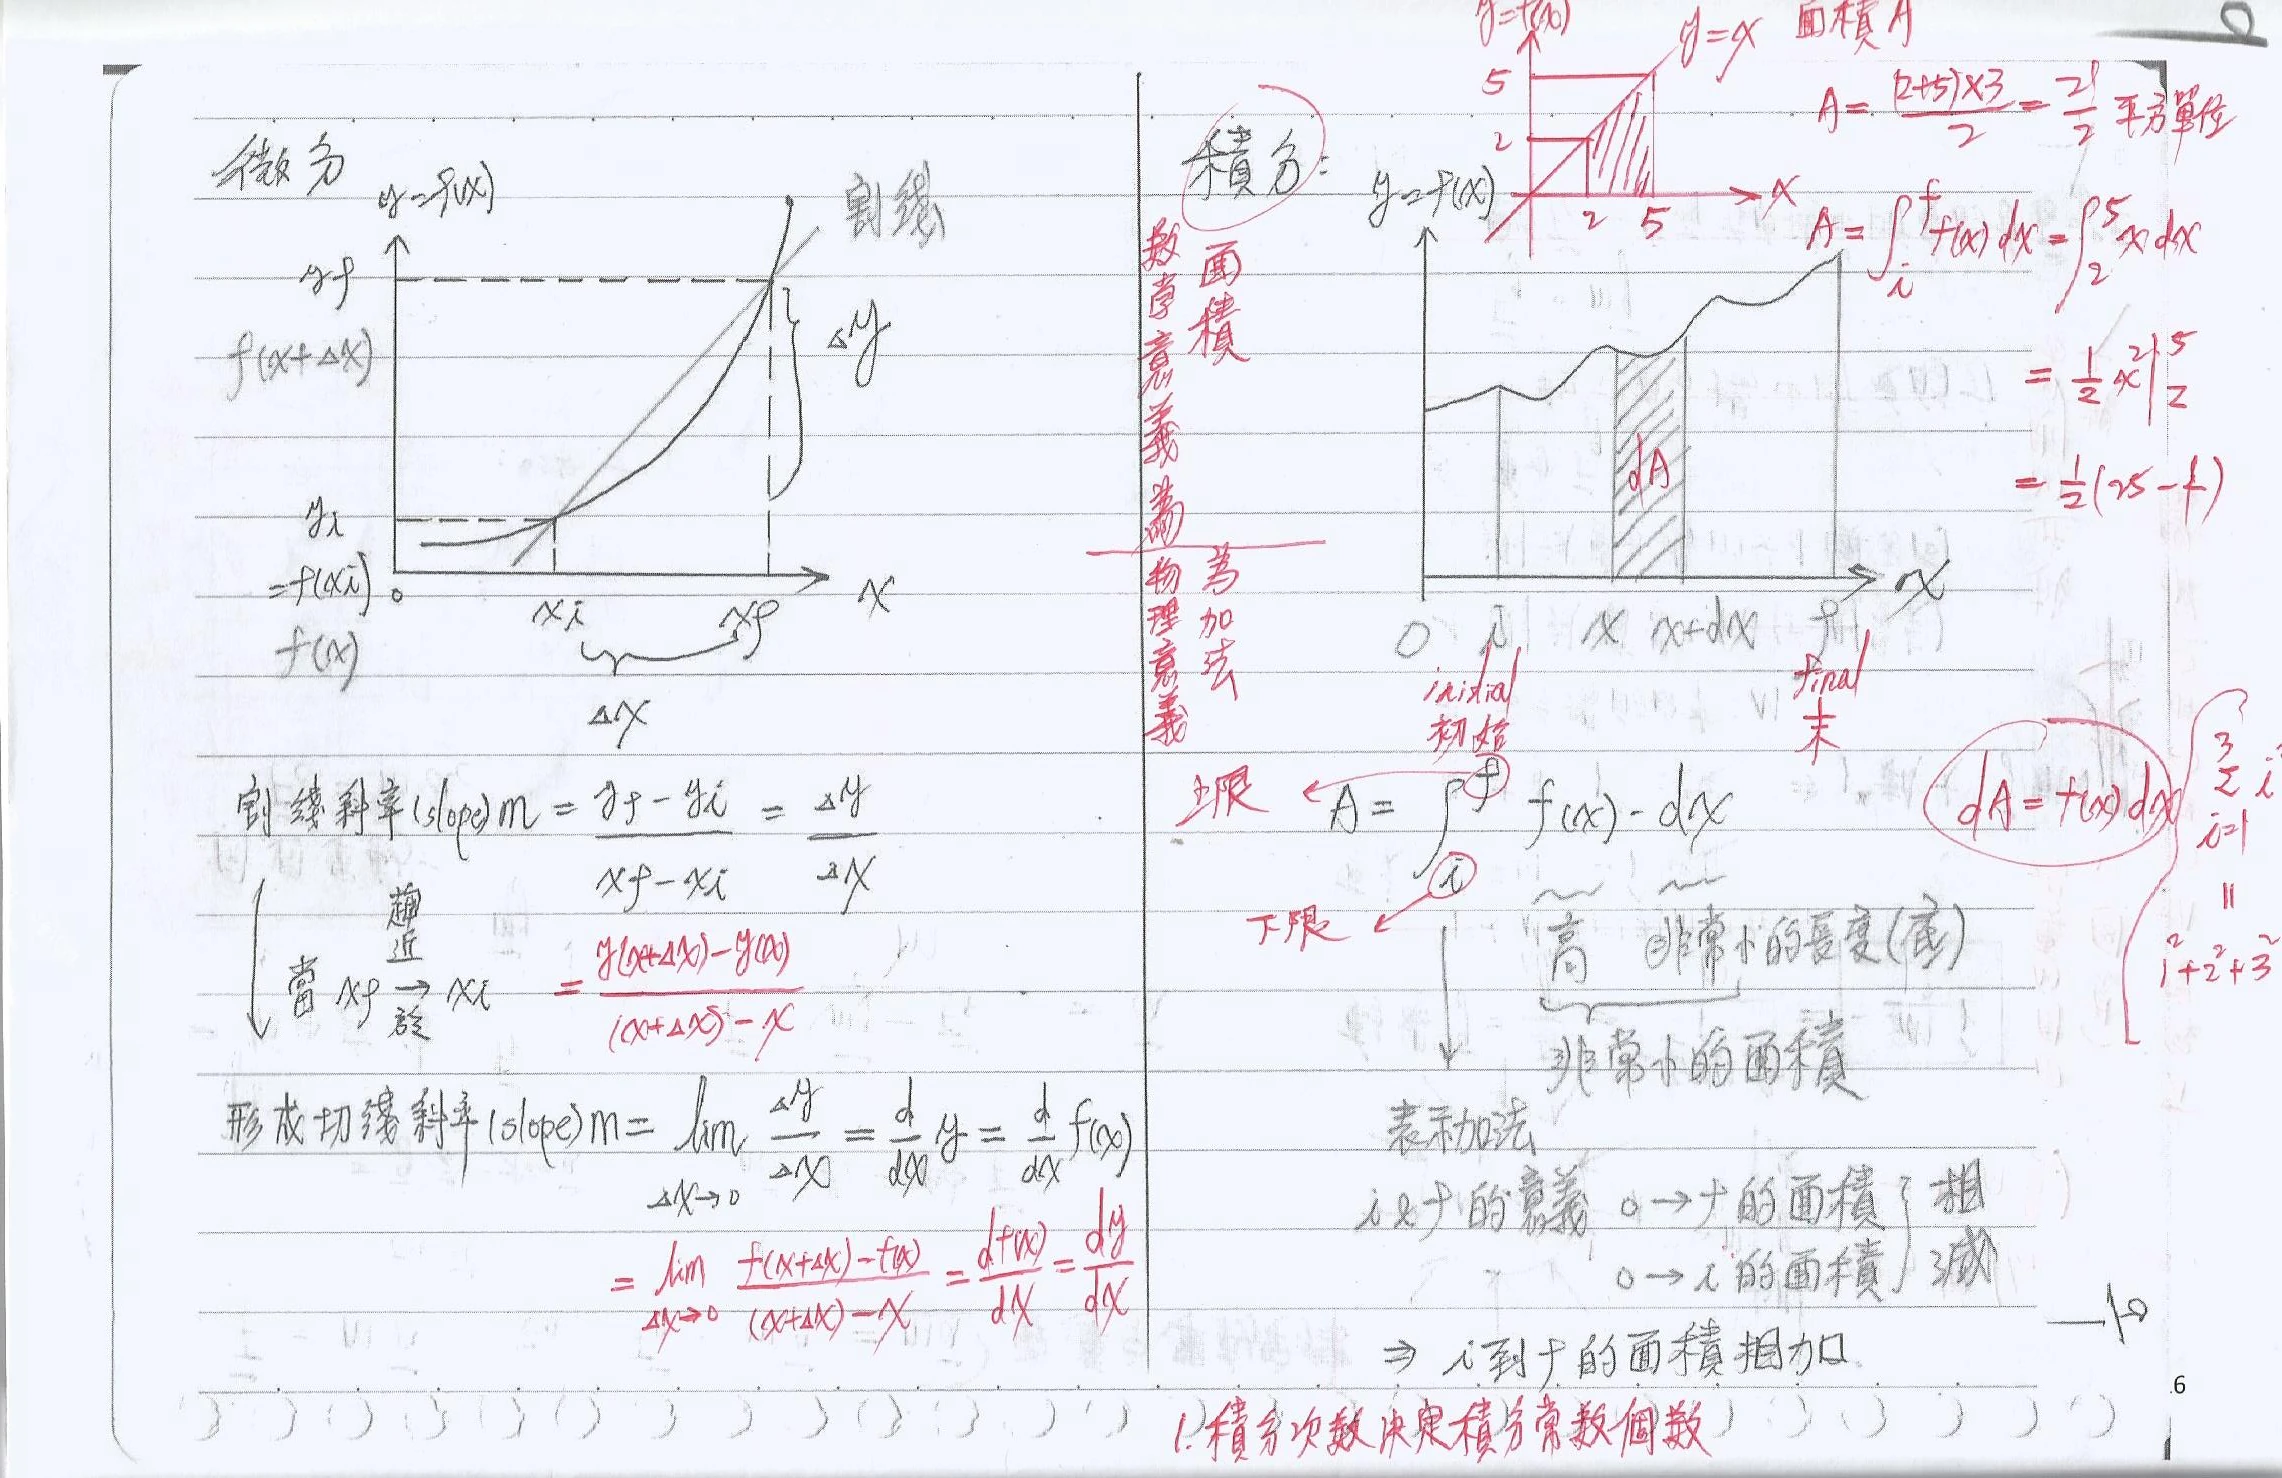 微分
y=f(x)
割綫
yf
f(x+△x)
△y
yi
=f(xi)
f(x)
0
xi
xf
x
△x
割綫斜率(slope)m = yf-yi / xf-xi = △y / △x
當 xf → xi
趨近
於
= y(x+△x)-y(x) / (x+△x)-x
形成切綫斜率(slope)m = lim △x→0 △y/△x = d/dx y = d/dx f(x)
= lim △x→0 f(x+△x)-f(x) / (x+△x)-x = df(x)/dx = dy/dx
積分:
數學意義為
面積
物理意義
為加法
y=f(x)
y=x
5
2
2
5
x
面積A
A = (2+5)×3 / 2 = 21/2 平方單位
A = ∫ i f f(x) dx = ∫ 2 5 x dx
= 1/2 x² | 5 2
= 1/2 (25-4)
y=f(x)
dA
x
0 i x x+dx f
initial
初始
final
末
上限
A = ∫ i f f(x)-dx
下限
dA = f(x) dx
3
Σ i²
i=1
=
1²+2²+3²
高
非常小的長度(底)
非常小的面積
表示加法
i & f 的意義 0→f的面積
0→i的面積
相減
⇒ i到f的面積相加
6
1.積分次數決定積分常數個數